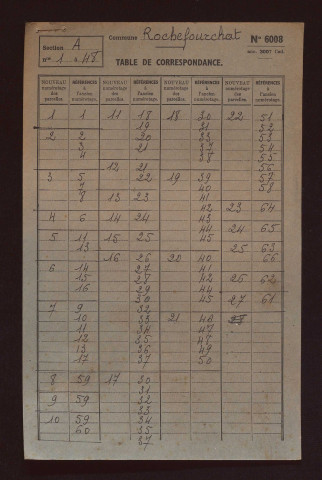 Commune Rochefourchat N° 6008
Section A
n° 1 à 48
TABLE DE CORRESPONDANCE.
NOUVEAU numérotage des parcelles. RÉFÉRENCES à l'ancien numérotage. NOUVEAU numérotage des parcelles. RÉFÉRENCES à l'ancien numérotage. NOUVEAU numérotage des parcelles. RÉFÉRENCES à l'ancien numérotage. NOUVEAU numérotage des parcelles. RÉFÉRENCES à l'ancien numérotage.
1 1 11 18 18 30 22 51
19 31 52
2 2 20 33 53
3 21 37 54
4 38 55
12 21 56
3 5 22 19 39 57
7 40 58
8 13 23 41
42 23 64
4 6 14 24 43
44 24 65
5 11 15 25 45
13 25 63
16 26 20 40 66
6 14 27 41
15 28 42 26 62
16 29 44
30 45 27 61
7 9 32
10 33 21 40
11 34 47
12 35 48
13 36 49
17 37 50
8 59 17 30
31
9 59 32
33
10 59 34
60 35
37